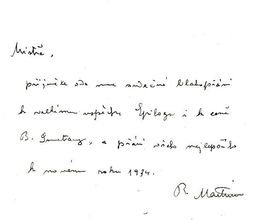 Mistře,
přijměte ode mne srdečné blahopřání
k velkému úspěchu Epilogu i k ceně
B. Smetany, a přání všeho nejlepšího
k novému roku 1934.
R.